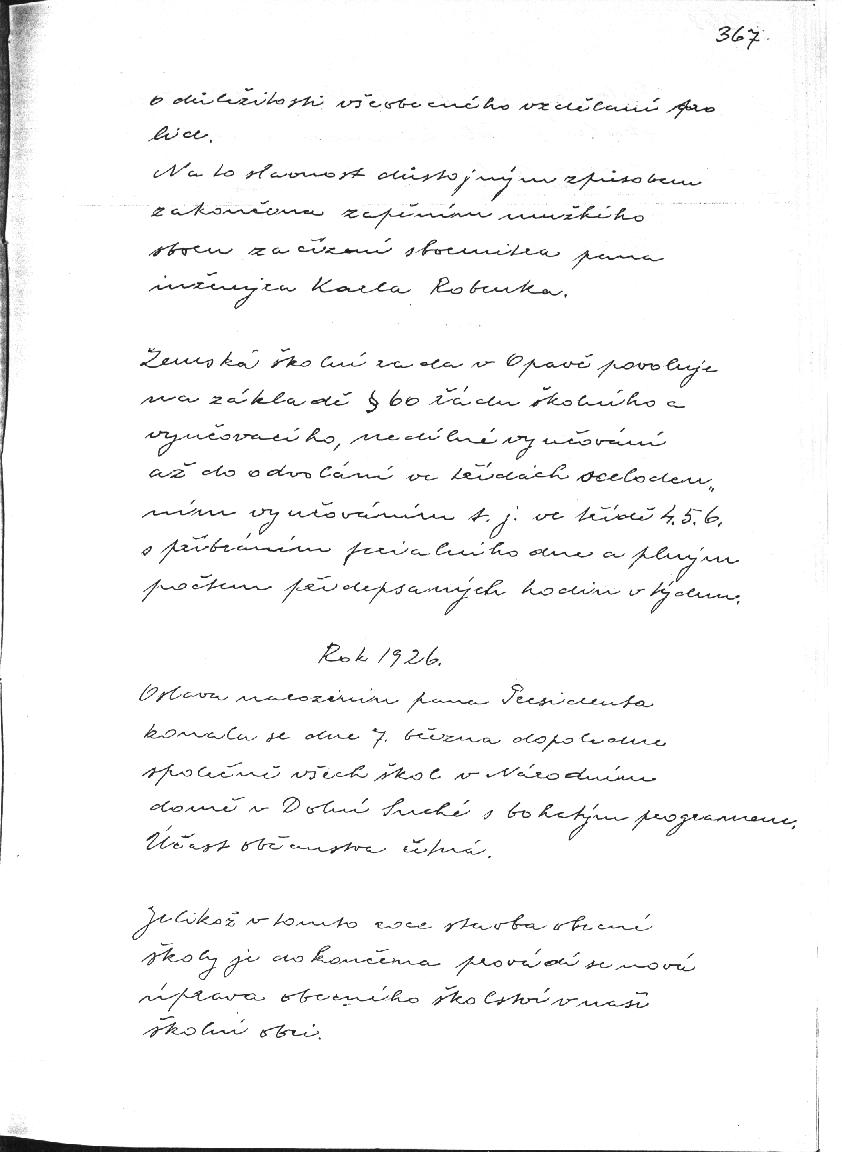 367.
o důležitosti všeobecného vzdělaní pro
lid.
Na to slavnost důstojným způsobem
zakončena zapěním mužského
sboru za řízení sbormistra pana
inženýra Karla Robenka.
Zemská školní rada v Opavě povoluje
na základě § 60 řádu školního a
vyučovacího, nedílné vyučování
až do odvolání ve třídách s celoden„
ním vyučováním t. j. ve třídě 4. 5. 6.
s přibráním feriálního dne a plným
počtem předepsaných hodin v týdnu.
Rok 1926.
Oslava narozenin pana Presidenta
konala se dne 7. března dopoledne
společně všech škol v Národním
domě v Dolní Suché s bohatým programem.
Účast občanstva četná.
Jelikož v tomto roce stavba obecné
školy je dokončena provádí se nová
úprava obecného školství v naší
školní obci.